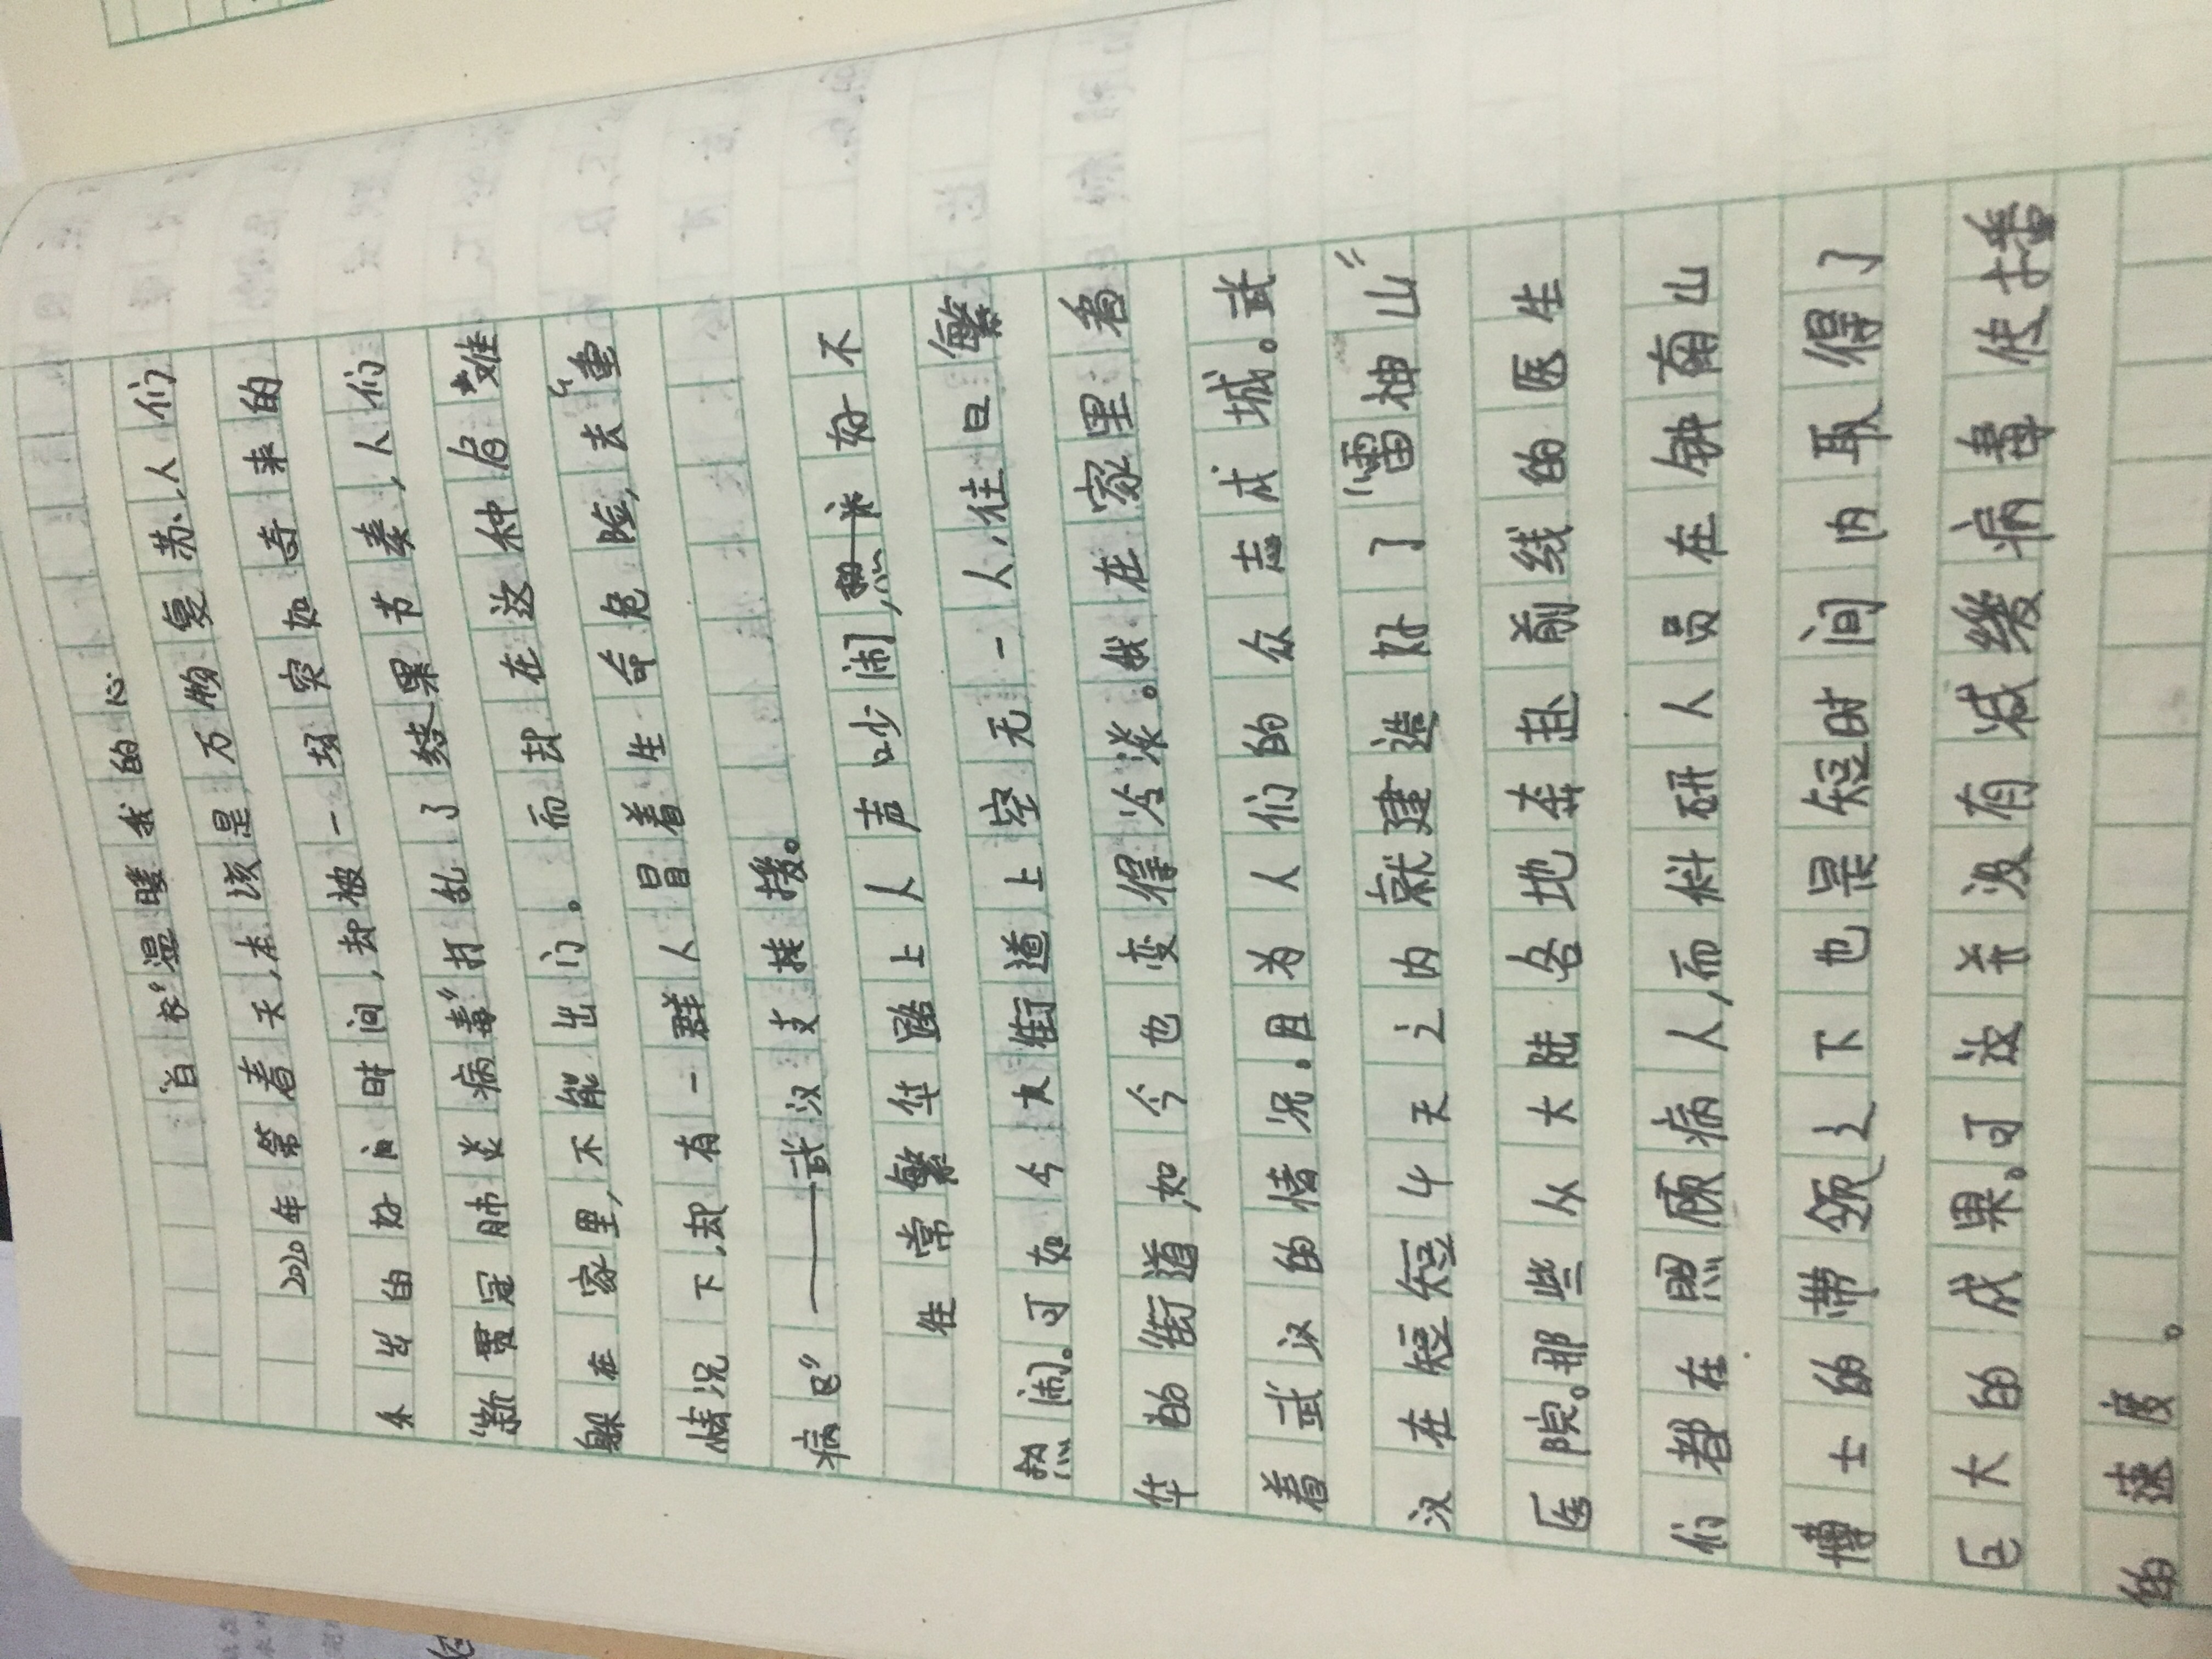 “白衣”温暖我的心
2020年第着天,本该是万物复苏,人们
外出的好的时间,却被一场突如奇来的
“新冠肺炎病毒”打乱了结果节奏,人们
躲在家里,不能出门。而却在这种危难
情况下,却有一群人冒着生命危险,去“重
病区”——武汉支援。
往常繁华路上人声吵闹,好不
热闹。可如今大街道上空无一人,往日繁
华的街道,如今也变得冷漆。我在家里看
着武汉的情况。因为人们的众志成城。武
汉在短短4天之内就建造好了“雷神山”
医院。那些从大陆各地奔赴前线的医生
们都在照顾病人,而科研人员在钟南山
博士的带领之下也是短时间内取得了
巨大的成果。可没并没有减缓病毒传播
的速度。